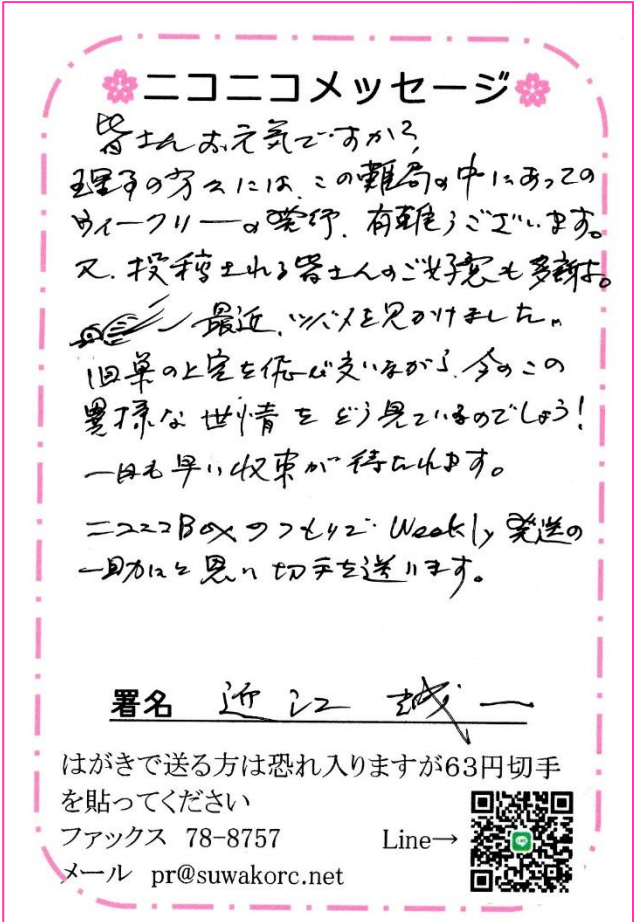 ニコニコメッセージ
皆さんお元気ですか?
理事の方々には、この難局の中にあっての
ウィークリーの発行、有難うございます。
又、投稿される皆さんのご好意も多謝です。
最近、ツバメを見かけました。
旧巣の上空を飛び交いながら、今のこの
異様な世情をどう見ているのでしょう!
一日も早い収束が待たれます。
ニコニコBoxのつもりで Weekly 発送の
一助にと思い切手を送ります。
署名 近江 誠一
はがきで送る方は恐れ入りますが63円切手
を貼ってください
ファックス 78-8757 Line→
メール pr@suwakorc.net